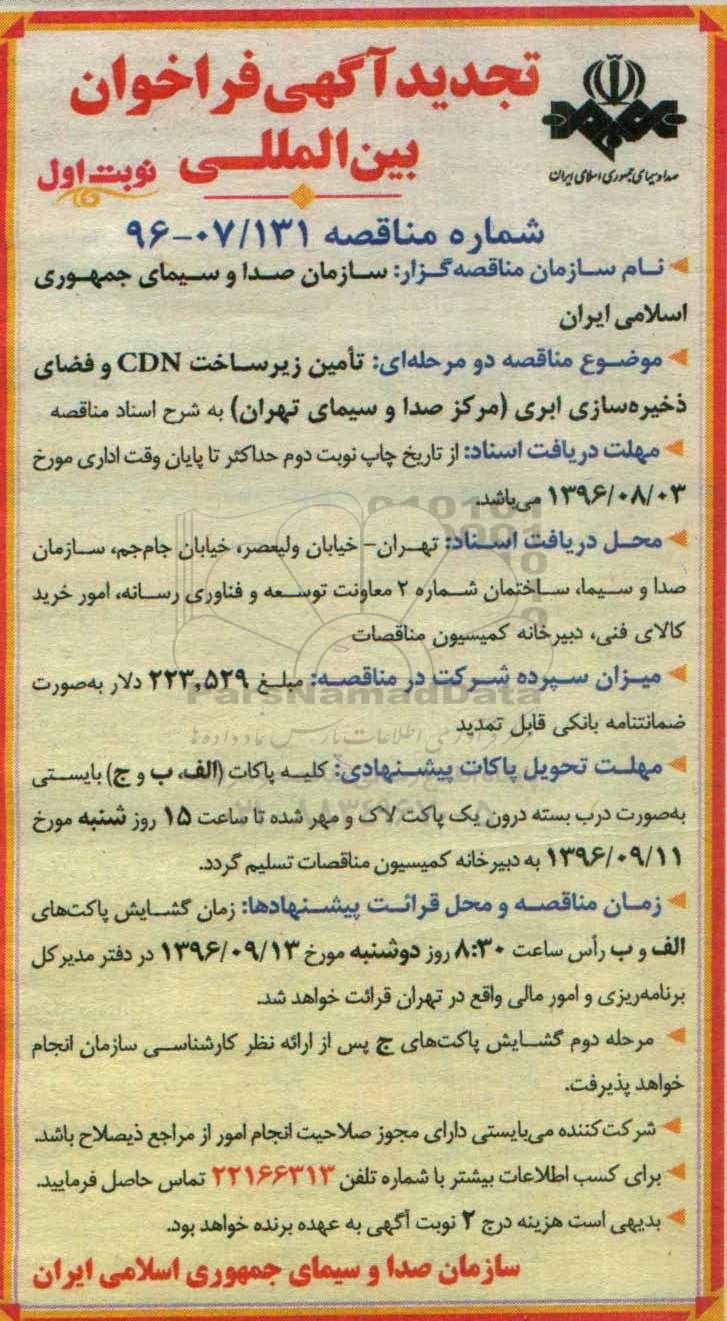 تجدید آگهی فراخوان
بین‌المللی
نوبت اول
صدا و سیمای جمهوری اسلامی ایران
شماره مناقصه ۹۶-۰۷/۱۳۱
نام سازمان مناقصه‌گزار: سازمان صدا و سیمای جمهوری
اسلامی ایران
موضوع مناقصه دو مرحله‌ای: تأمین زیرساخت CDN و فضای
ذخیره‌سازی ابری (مرکز صدا و سیمای تهران) به شرح اسناد مناقصه
مهلت دریافت اسناد: از تاریخ چاپ نوبت دوم حداکثر تا پایان وقت اداری مورخ
۱۳۹۶/۰۸/۰۳ می‌باشد.
محل دریافت اسناد: تهران- خیابان ولیعصر، خیابان جام‌جم، سازمان
صدا و سیما، ساختمان شماره ۲ معاونت توسعه و فناوری رسانه، امور خرید
کالای فنی، دبیرخانه کمیسیون مناقصات
میزان سپرده شرکت در مناقصه: مبلغ ۲۲۳,۵۲۹ دلار به‌صورت
ParsNamadData
ضمانتنامه بانکی قابل تمدید
مهلت تحویل پاکات پیشنهادی: کلیه پاکات (الف، ب و ج) بایستی
به‌صورت درب بسته درون یک پاکت لاک و مهر شده تا ساعت ۱۵ روز شنبه مورخ
۱۳۹۶/۰۹/۱۱ به دبیرخانه کمیسیون مناقصات تسلیم گردد.
زمان مناقصه و محل قرائت پیشنهادها: زمان گشایش پاکت‌های
الف و ب رأس ساعت ۸:۳۰ روز دوشنبه مورخ ۱۳۹۶/۰۹/۱۳ در دفتر مدیر کل
برنامه‌ریزی و امور مالی واقع در تهران قرائت خواهد شد.
مرحله دوم گشایش پاکت‌های ج پس از ارائه نظر کارشناسی سازمان انجام
خواهد پذیرفت.
شرکت‌کننده می‌بایستی دارای مجوز صلاحیت انجام امور از مراجع ذیصلاح باشد.
برای کسب اطلاعات بیشتر با شماره تلفن ۲۲۱۶۶۳۱۳ تماس حاصل فرمایید.
بدیهی است هزینه درج ۲ نوبت آگهی به عهده برنده خواهد بود.
سازمان صدا و سیمای جمهوری اسلامی ایران